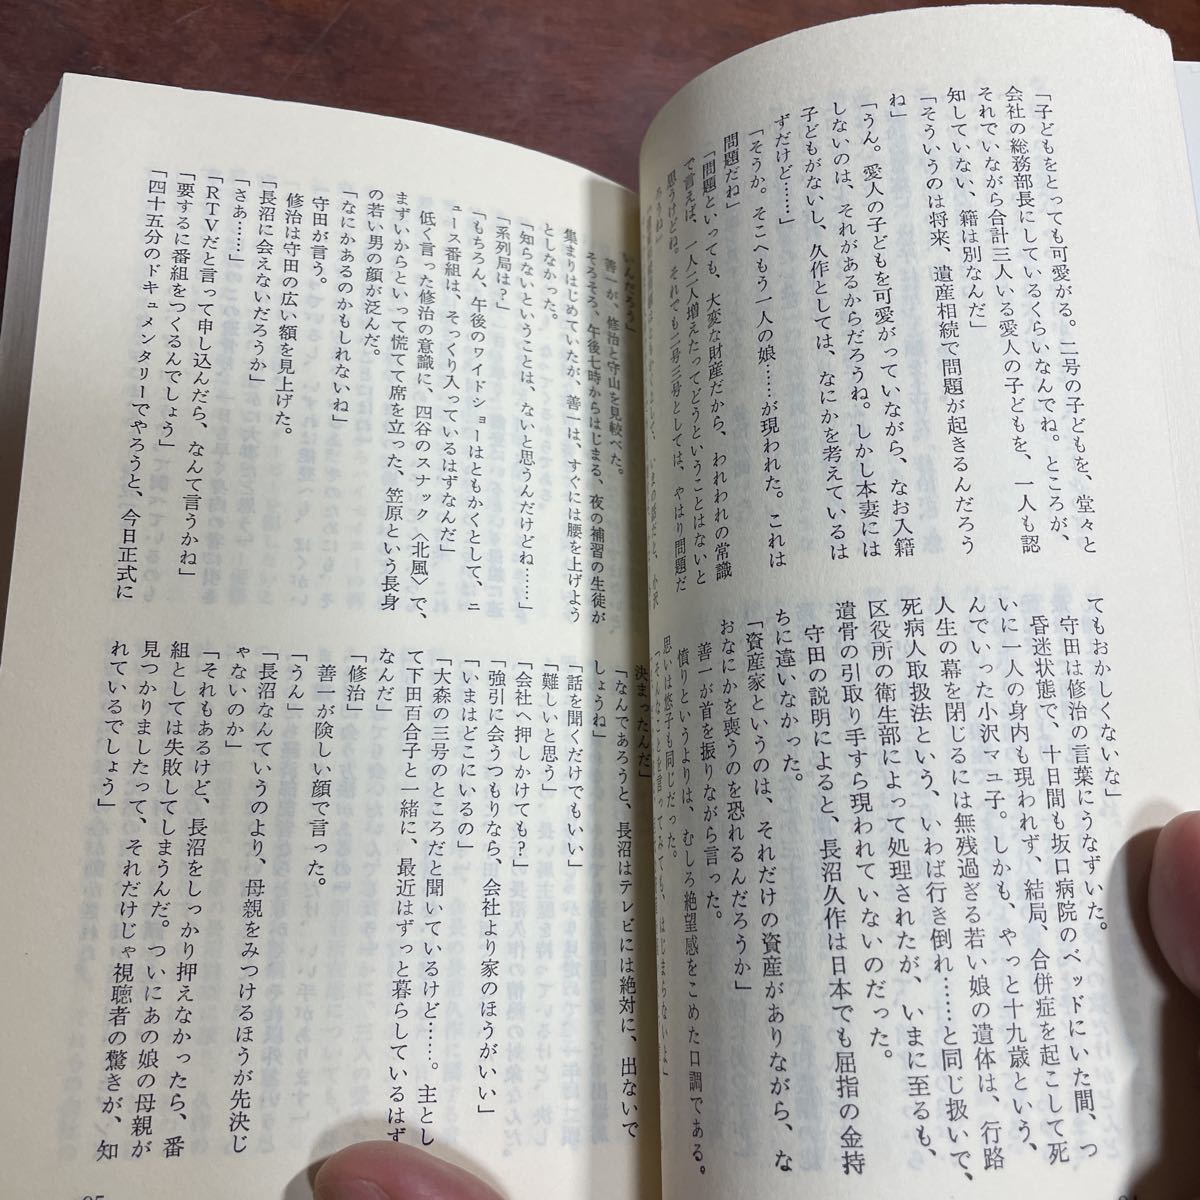 「子どもをとっても可愛がる。二号の子どもを、堂々と
会社の総務部長にしているくらいなんでね。ところが、
それでいながら合計三人いる愛人の子どもを、一人も認
知していない、籍は別なんだ」
「そういうのは将来、遺産相続で問題が起きるんだろう
ね」
「うん。愛人の子どもを可愛がっていながら、なお入籍
しないのは、それがあるからだろうね。しかし本妻には
子どもがないし、久作としては、なにかを考えているは
ずだけど……」
「そうか。そこへもう一人の娘……が現われた。これは
問題だね」
「問題といっても、大変な財産だから、われわれの常識
で言えば、一人二人増えたってどうということはないと
思うけどね。それでも二号三号としては、やはり問題だ
てもおかしくないな」
守田は修治の言葉にうなずいた。
昏迷状態で、十日間も坂口病院のベッドにいた間、つ
いに一人の身内も現われず、結局、合併症を起こして死
んでいった小沢マユ子。しかも、やっと十九歳という、
人生の幕を閉じるには無残過ぎる若い娘の遺体は、行路
死病人取扱法という、いわば行き倒れ……と同じ扱いで、
区役所の衛生部によって処理されたが、いまに至るも、
遺骨の引取り手すら現われていないのだった。
守田の説明によると、長沼久作は日本でも屈指の金持
ちに違いなかった。
「資産家というのは、それだけの資産がありながら、な
おなにかを喪うのを恐れるんだろうか」
善一が首を振りながら言った。
憤りというよりは、むしろ絶望感をこめた口調である。
思いは悠子も同じだった。
「そんなことを言ってみても、はじまらないよ」
いんだろう」
善一が、修治と守山を見較べた。
そろそろ、午後七時からはじまる、夜の補習の生徒が
集まりはじめていたが、善一は、すぐには腰を上げよう
としなかった。
「知らないということは、ないと思うんだけどね……」
「系列局は？」
「もちろん、午後のワイドショーはともかくとして、ニ
ュース番組は、そっくり入っているはずなんだ」
低く言った修治の意識に、四谷のスナック〈北風〉で、
まずいからといって慌てて席を立った、笠原という長身
の若い男の顔が泛んだ。
「なにかあるのかもしれないね」
守田が言う。
修治は守田の広い額を見上げた。
「長沼に会えないだろうか」
「さあ……」
「RTVだと言って申し込んだら、なんて言うかね」
「要するに番組をつくるんでしょう」
「四十五分のドキュメンタリーでやろうと、今日正式に
決まったんだ」
「なんであろうと、長沼はテレビには絶対に、出ないで
しょうね」
「話を聞くだけでもいい」
「難しいと思う」
「会社へ押しかけても？」
「強引に会うつもりなら、会社より家のほうがいい」
「いまはどこにいるの」
「大森の三号のところだと聞いているけど……。主とし
て下田百合子と一緒に、最近はずっと暮らしているはず
なんだ」
「修治」
善一が険しい顔で言った。
「うん」
「長沼なんていうのより、母親をみつけるほうが先決じ
ゃないのか」
「それもあるけど、長沼をしっかり押えなかったら、番
組としては失敗してしまうんだ。ついにあの娘の母親が
見つかりましたって、それだけじゃ視聴者の驚きが、知
れているでしょう」